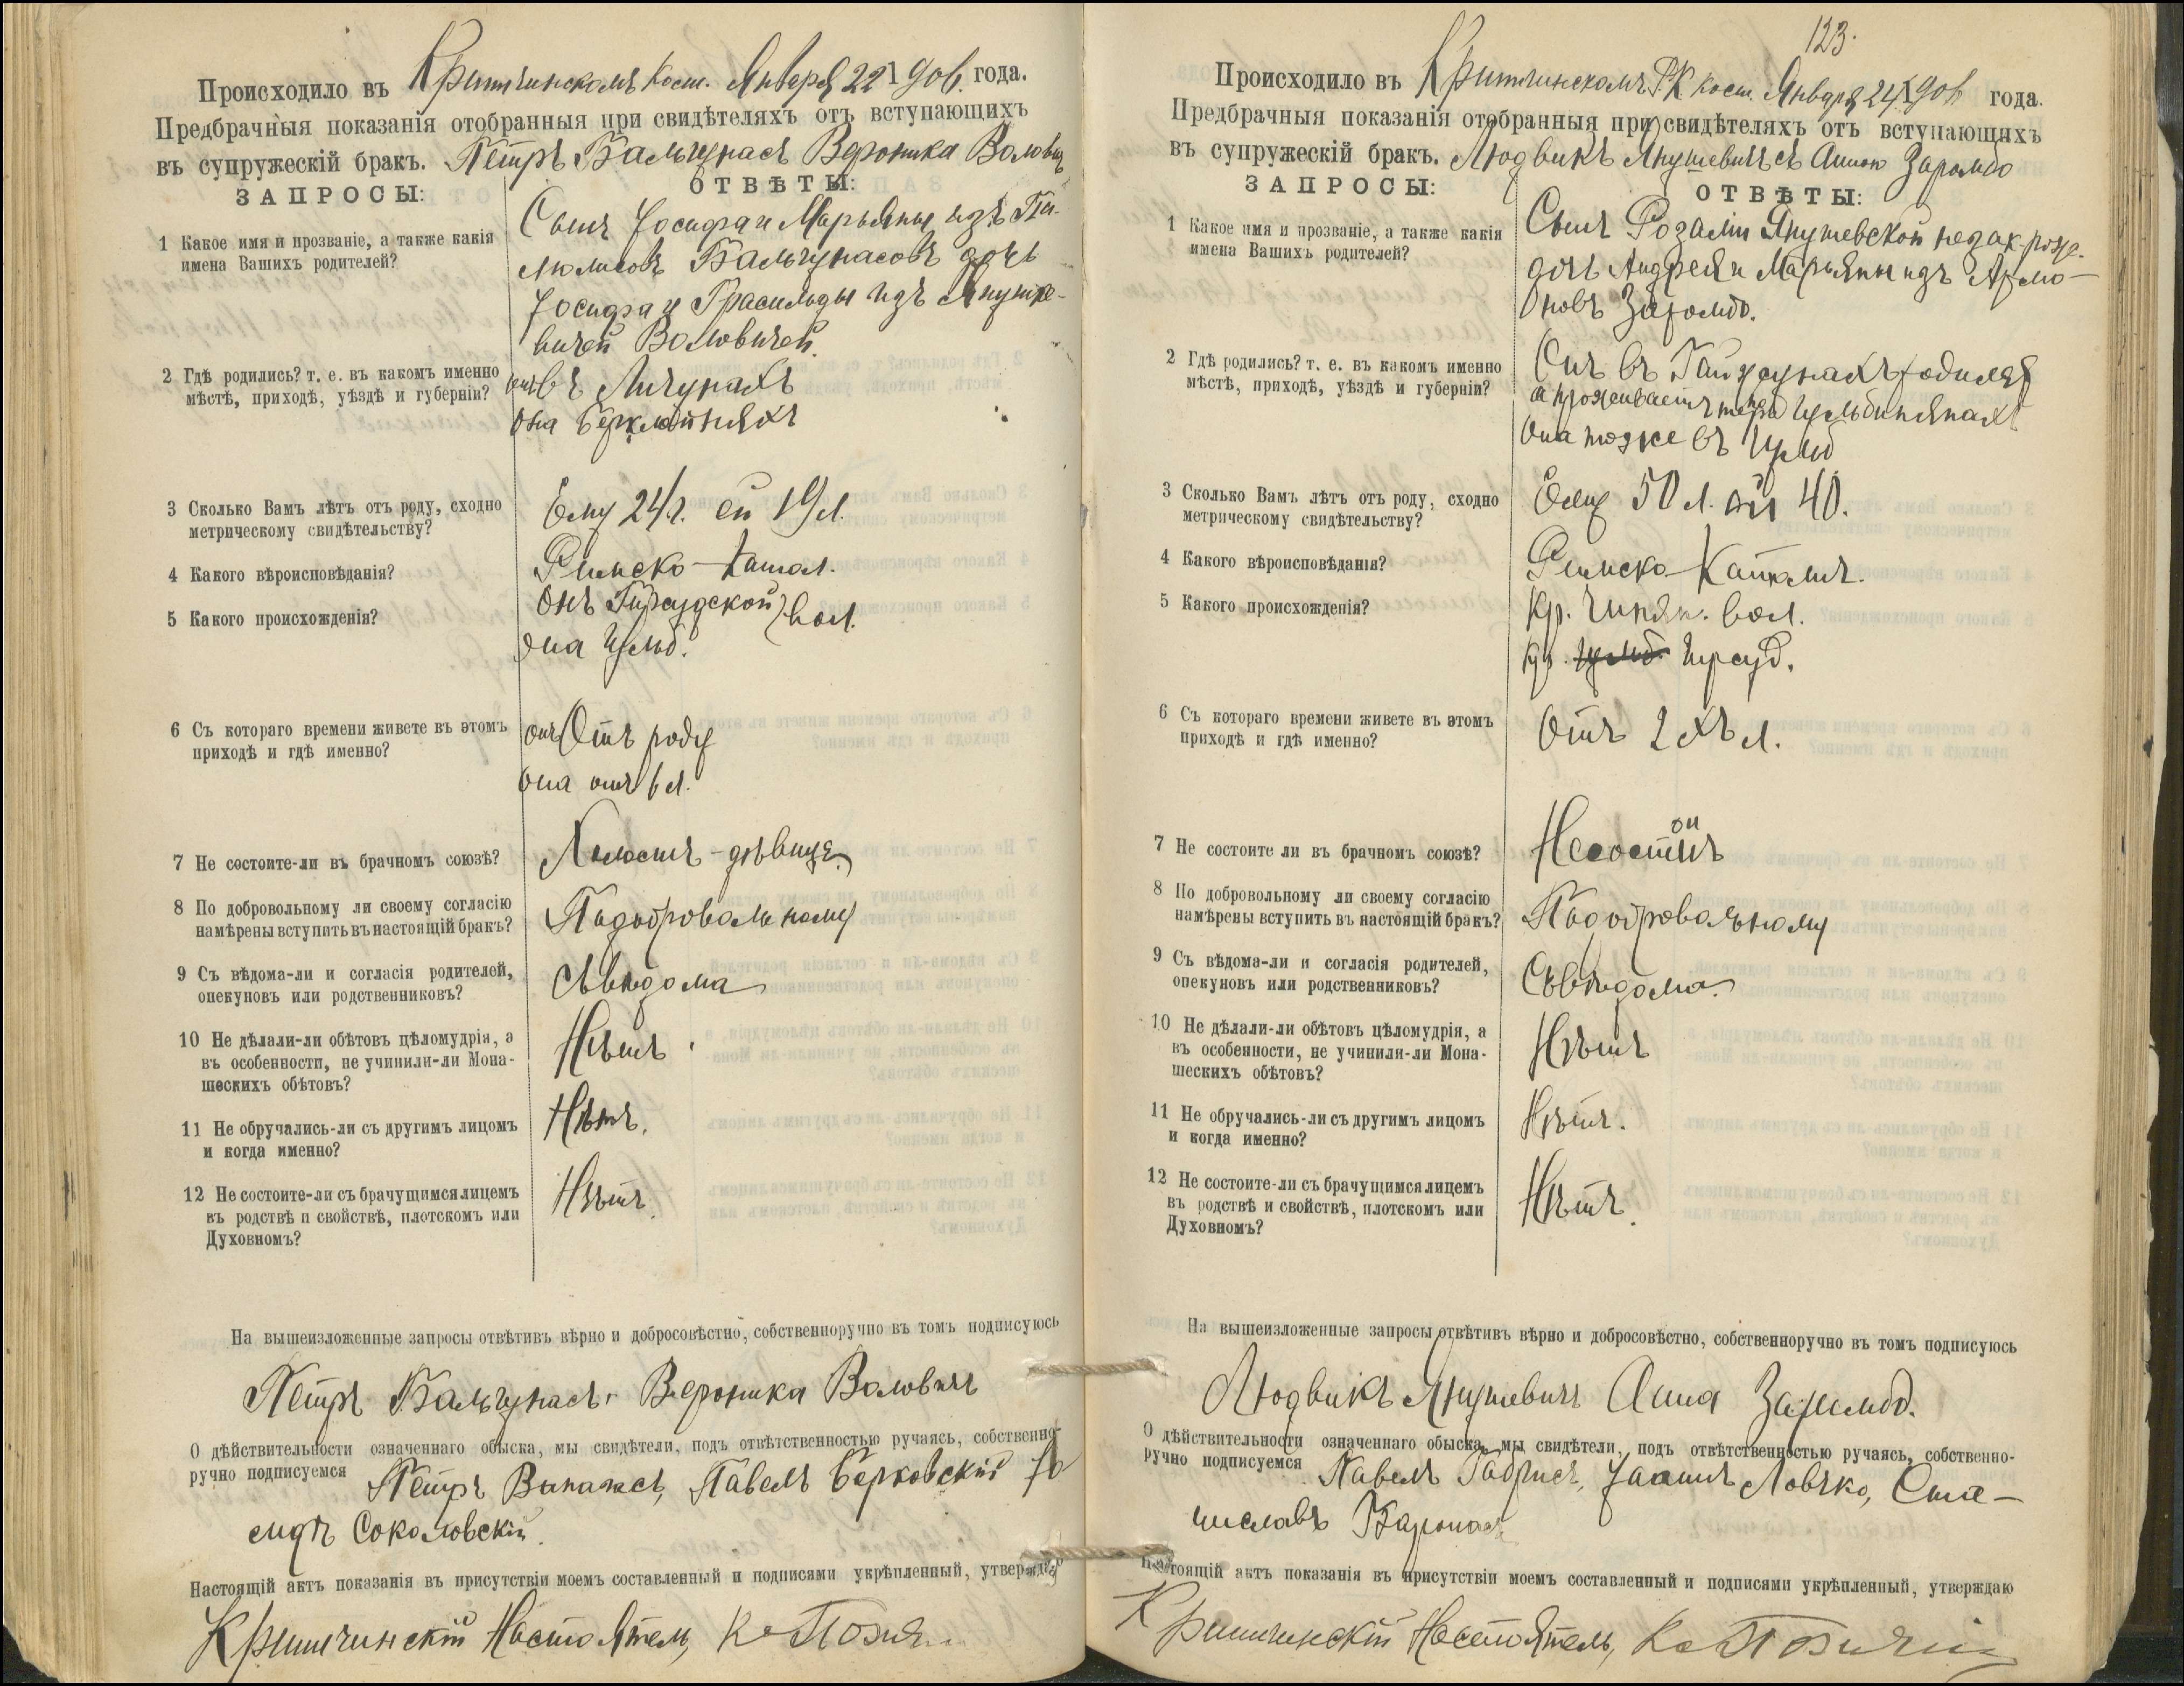 Происходило въ Критчинскомъ Кост. Января 22 1901 года.
Предбрачныя показанія отобранныя при свидѣтеляхъ отъ вступающихъ
въ супружескій бракъ. Петръ Бальчунасъ Вероника Воловичъ
ЗАПРОСЫ: ОТВѢТЫ:
1 Какое имя и прозваніе, а также какія
имена Вашихъ родителей?
Сынъ Іосифа и Марьяны изъ
Бальчунасовъ дочь
Іосифа и изъ Януше-
вичей Воловичей.
2 Гдѣ родились? т. е. въ какомъ именно
мѣстѣ, приходѣ, уѣздѣ и губерніи?
онъ въ Личунахъ
она
3 Сколько Вамъ лѣтъ отъ роду, сходно
метрическому свидѣтельству?
Ему 24 г. ей 19 л.
4 Какого вѣроисповѣданія?
Римско-Катол.
5 Какого происхожденія?
Онъ вол.
она
6 Съ котораго времени живете въ этомъ
приходѣ и гдѣ именно?
онъ Отъ роду
она отъ 6 л.
7 Не состоите-ли въ брачномъ союзѣ?
Холостъ - дѣвица
8 По добровольному ли своему согласію
намѣрены вступить въ настоящій бракъ?
Подобровольному
9 Съ вѣдома-ли и согласія родителей,
опекуновъ или родственниковъ?
Съ вѣдома
10 Не дѣлали-ли обѣтовъ цѣломудрія, а
въ особенности, не учинили-ли Мона-
шескихъ обѣтовъ?
Нѣтъ
11 Не обручались-ли съ другимъ лицомъ
и когда именно?
Нѣтъ.
12 Не состоите-ли съ брачущимся лицемъ
въ родствѣ и свойствѣ, плотскомъ или
Духовномъ?
Нѣтъ.
На вышеизложенные запросы отвѣтивъ вѣрно и добросовѣстно, собственноручно въ томъ подписуюсь
Петръ Бальчунасъ, Вероника Воловичъ
О дѣйствительности означеннаго обыска, мы свидѣтели, подъ отвѣтственностью ручаясь, собственно-
ручно подписуемся Петръ Павелъ Берковскій Іо
сифъ Соколовскій.
Настоящій актъ показанія въ присутствіи моемъ составленный и подписями укрѣпленный, утверждаю
Критчинскій Настоятель,
123.
Происходило въ Критчинскомъ Р.К. кост. Января 24 1901 года.
Предбрачныя показанія отобранныя при свидѣтеляхъ отъ вступающихъ
въ супружескій бракъ. Людвикъ Янушевичъ съ Анною
ЗАПРОСЫ: ОТВѢТЫ:
1 Какое имя и прозваніе, а также какія
имена Вашихъ родителей?
Сынъ Розаліи Янушевской незак. рожд.
дочь Андрея и Марьяны изъ Армо-
новъ
2 Гдѣ родились? т. е. въ какомъ именно
мѣстѣ, приходѣ, уѣздѣ и губерніи?
Онъ въ родился
а проживаетъ
она тоже въ
3 Сколько Вамъ лѣтъ отъ роду, сходно
метрическому свидѣтельству?
Ему 50 л. ей 40.
4 Какого вѣроисповѣданія?
Римско-Катол.
5 Какого происхожденія?
Кр. вол.
кр.
6 Съ котораго времени живете въ этомъ
приходѣ и гдѣ именно?
Отъ 2хъ л.
7 Не состоите ли въ брачномъ союзѣ?
8 По добровольному ли своему согласію
намѣрены вступить въ настоящій бракъ?
Подобровольному
9 Съ вѣдома-ли и согласія родителей,
опекуновъ или родственниковъ?
Съ вѣдома.
10 Не дѣлали-ли обѣтовъ цѣломудрія, а
въ особенности, не учинили-ли Мона-
шескихъ обѣтовъ?
Нѣтъ
11 Не обручались-ли съ другимъ лицомъ
и когда именно?
Нѣтъ.
12 Не состоите-ли съ брачущимся лицемъ
въ родствѣ и свойствѣ, плотскомъ или
Духовномъ?
Нѣтъ.
На вышеизложенные запросы отвѣтивъ вѣрно и добросовѣстно, собственноручно въ томъ подписуюсь
Людвикъ Янушевичъ Анна
О дѣйствительности означеннаго обыска, мы свидѣтели, подъ отвѣтственностью ручаясь, собственно-
ручно подписуемся Павелъ Габрисъ, Ста-
ниславъ
Настоящій актъ показанія въ присутствіи моемъ составленный и подписями укрѣпленный, утверждаю
Критчинскій Настоятель,